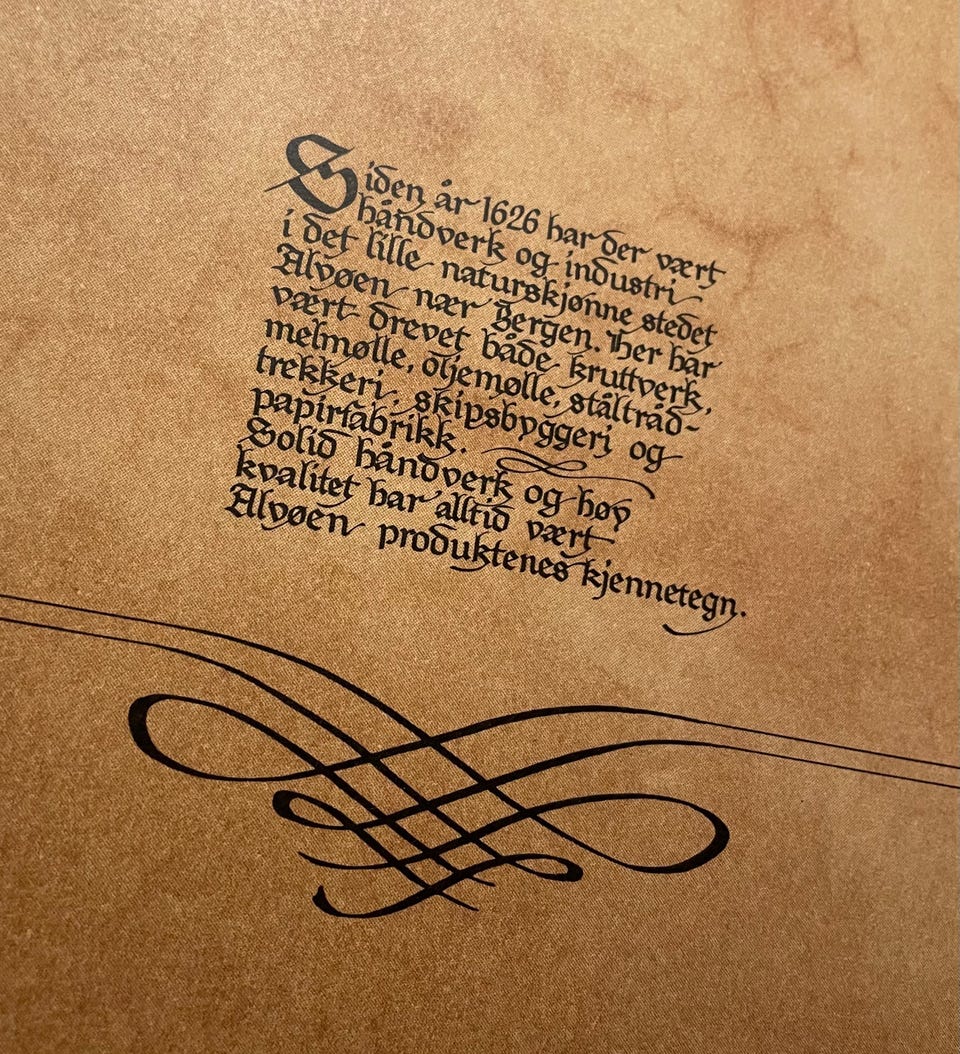 Siden år 1626 har der vært
håndverk og industri
i det lille naturskjønne stedet
Alvøen nær Bergen. Her har
vært drevet både kruttverk,
melmølle, oljemølle, ståltråd-
trekkeri, skipsbyggeri og
papirfabrikk.
Solid håndverk og høy
kvalitet har alltid vært
Alvøen produktenes kjennetegn.